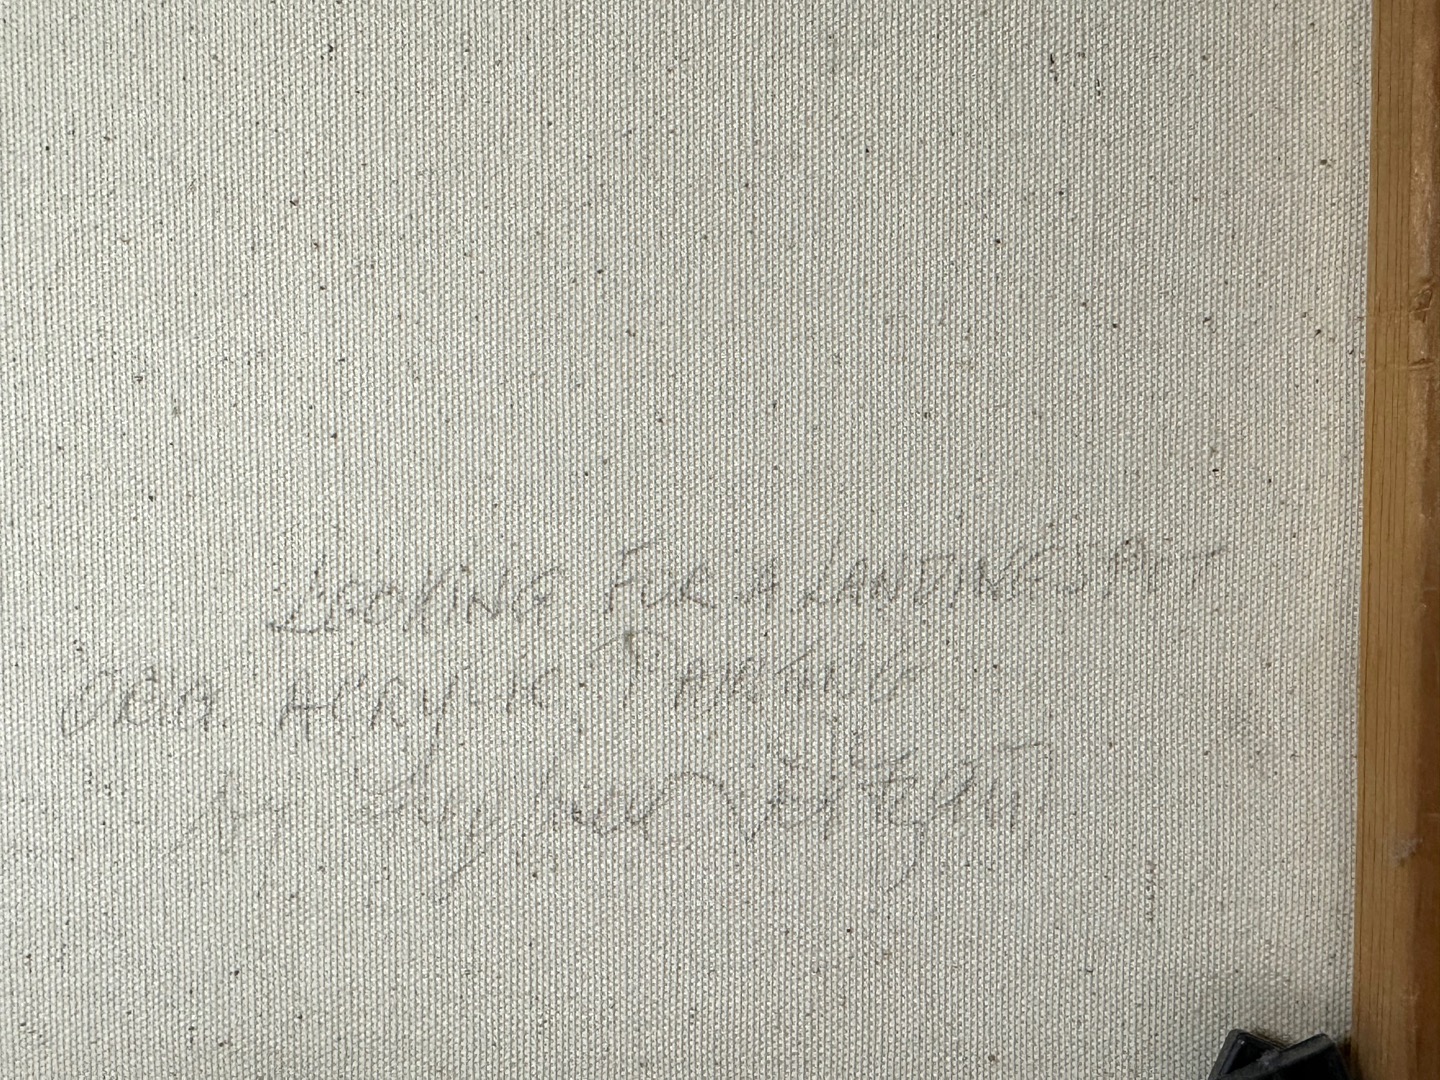 LOOKING FOR A LANDING SPOT
ORIG. ACRYLIC PAINTING
by